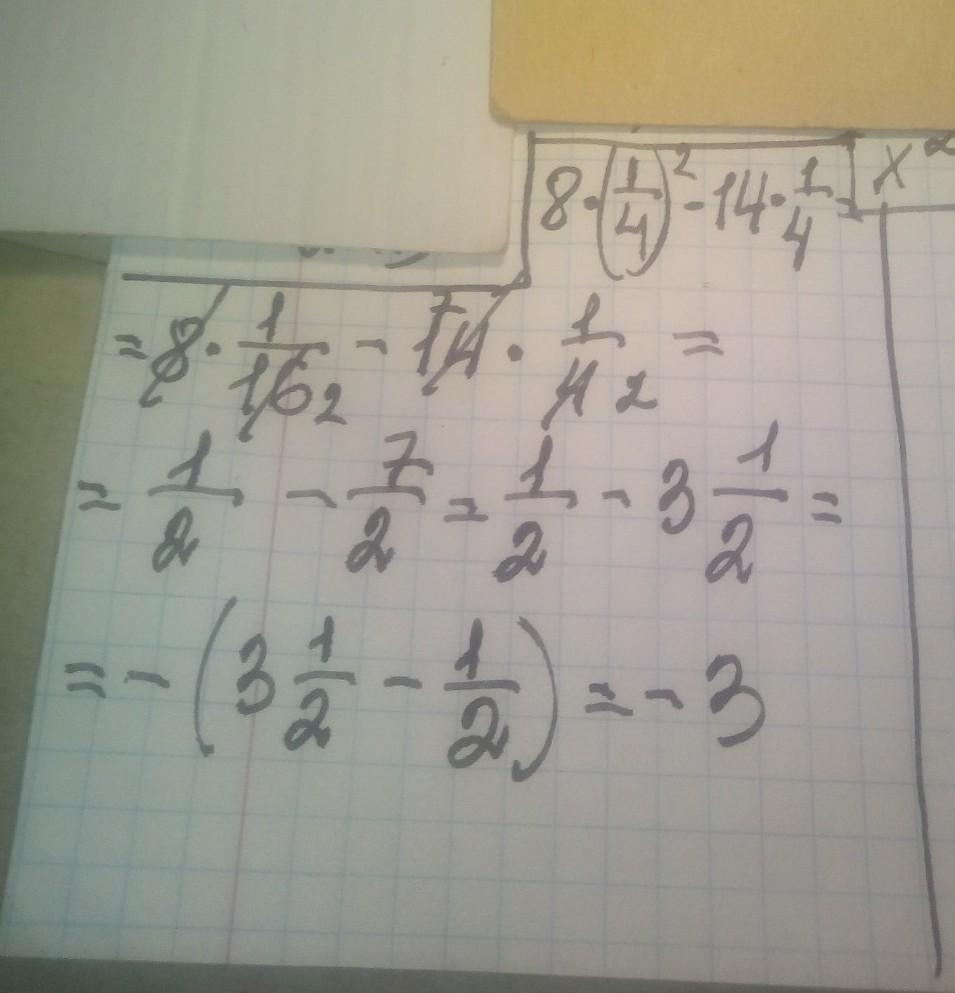 8·(1/4)² - 14·1/4 =
x
= 8 · 1/16 2 - 14 7 · 1/4 2 =
= 1/2 - 7/2 = 1/2 - 3 1/2 =
= - (3 1/2 - 1/2) = - 3